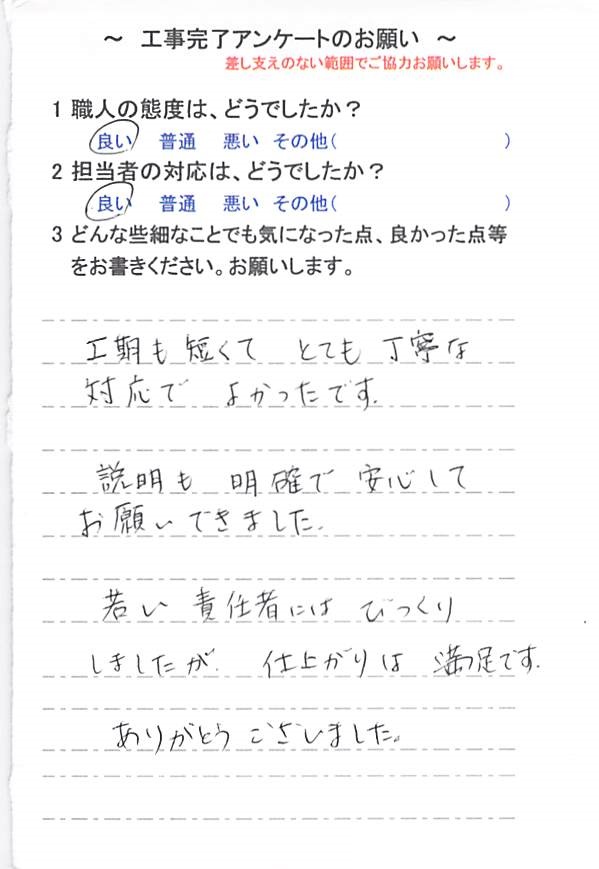 ～ 工事完了アンケートのお願い ～
差し支えのない範囲でご協力お願いします。
1 職人の態度は、どうでしたか？
良い 普通 悪い その他( )
2 担当者の対応は、どうでしたか？
良い 普通 悪い その他( )
3 どんな些細なことでも気になった点、良かった点等
をお書きください。お願いします。
工期も短くて とても丁寧な
対応で よかったです.
説明も 明確で 安心して
お願いできました.
若い 責任者には びっくり
しましたが. 仕上がりは 満足です.
ありがとうございました。